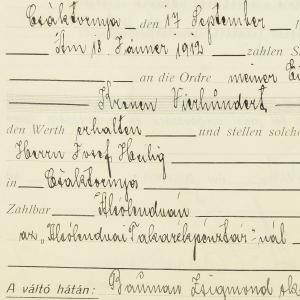 Csáktornya den 17 September
Am 18. Jänner 1912 zahlen
an die Ordre meiner
Kronen Vierhundert
den Werth erhalten und stellen solche
Herrn Josef Heilig
in Csáktornya
Zahlbar Alsólendván
az „Alsólendvai Takarékpénztár"-nál
A váltó hátán: Zsigmond